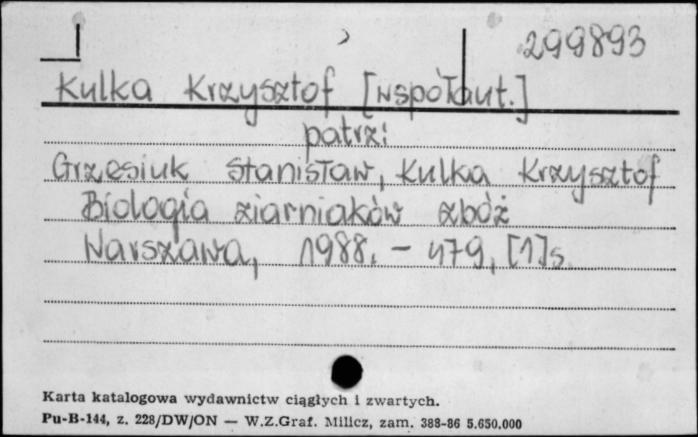 299893
Kulka Krzysztof [współaut.]
patrz:
Grzesiuk Stanisław, Kulka Krzysztof
Biologia ziarniaków zbóż
Warszawa, 1988. - 479, [1] s.
Karta katalogowa wydawnictw ciągłych i zwartych.
Pu-B-144, z. 228/DW/ON — W.Z.Graf. Milicz, zam. 388-86 5.650.000